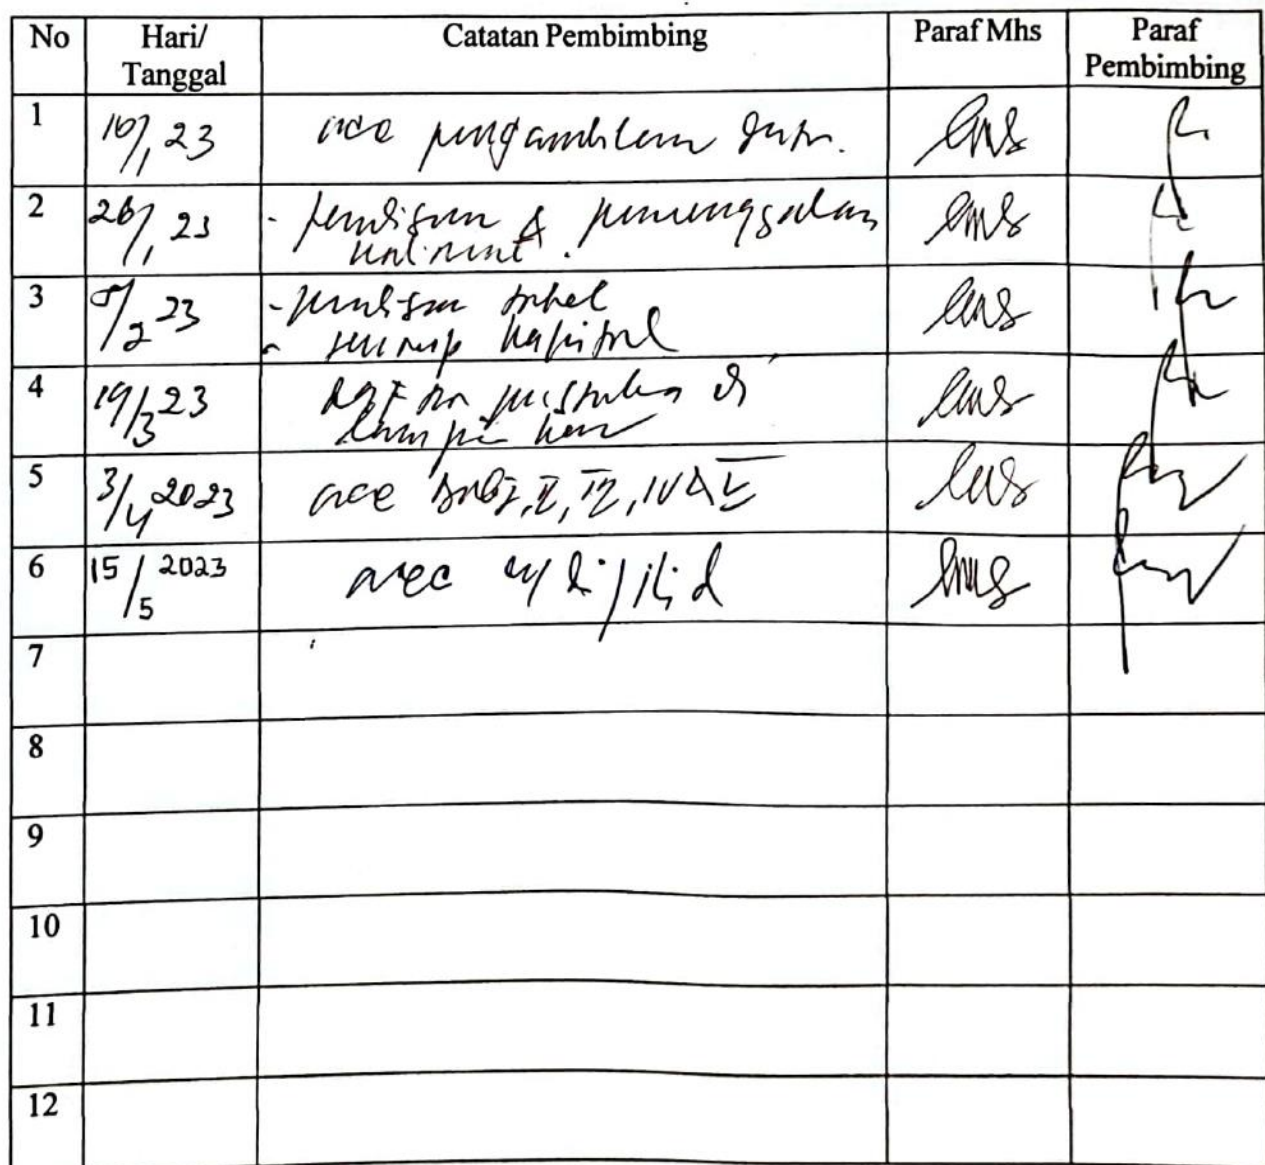 No Hari/ Tanggal Catatan Pembimbing Paraf Mhs Paraf Pembimbing
1 16/1 23 acc pengambilan data.
2 26/1 23 - penulisan & pemenggalan
kalimat.
3 8/2 23 - penulisan tabel
- huruf kapital
4 19/3 23 daftar pustaka di
lampirkan
5 3/4 2023 acc bab I, II, III, IV & V
6 15/5 2023 acc u/ dijilid
7
8
9
10
11
12